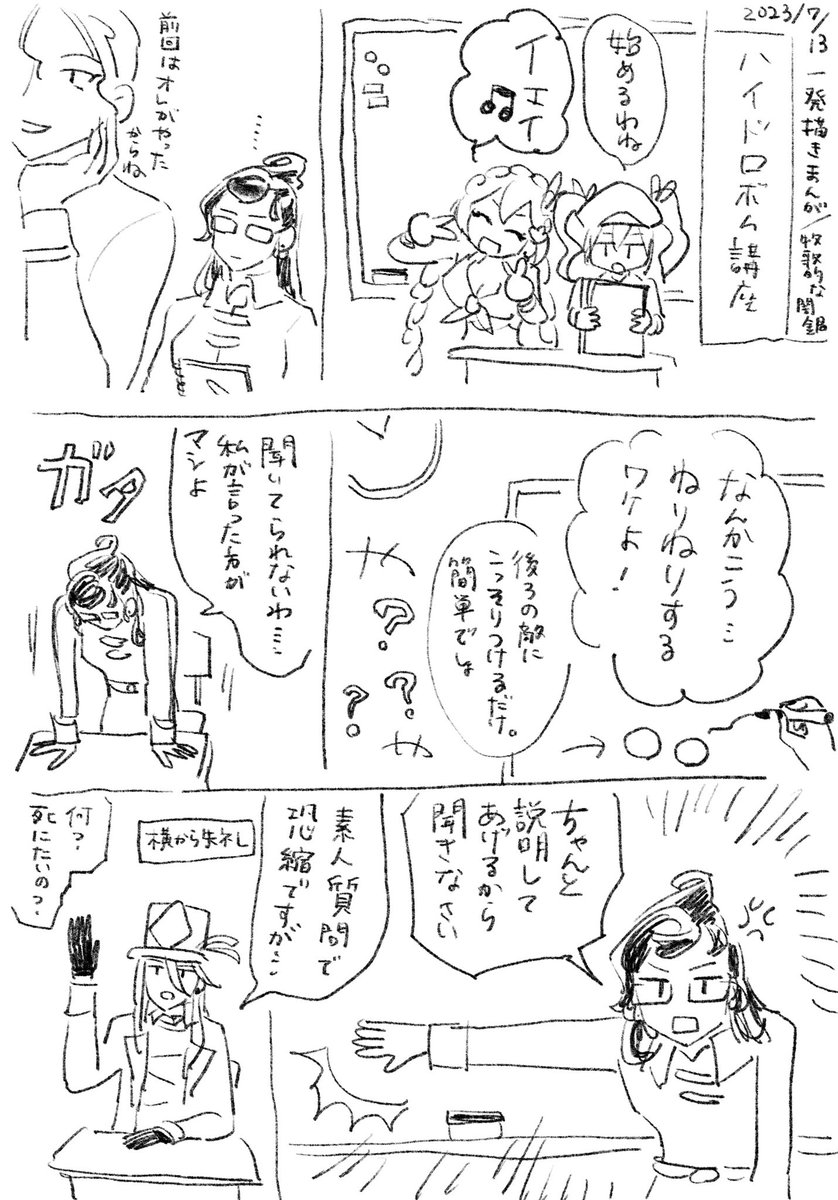 2023/7/13
一発描きまんが/牧歌的な闇鍋
ハイドロボム講座
始めるわね
イェイ♫
……
前回はオレがやった
からね
なんかこう…
ねりねりする
ワケよ!
後ろの敵に
こっそりつけるだけ。
簡単でしょ
???
聞いてられないわ……
私が言った方が
マシよ
ガタ
ちゃんと
説明して
あげるから
聞きなさい
素人質問で
恐縮ですが…
横から失礼
何?
死にたいの?